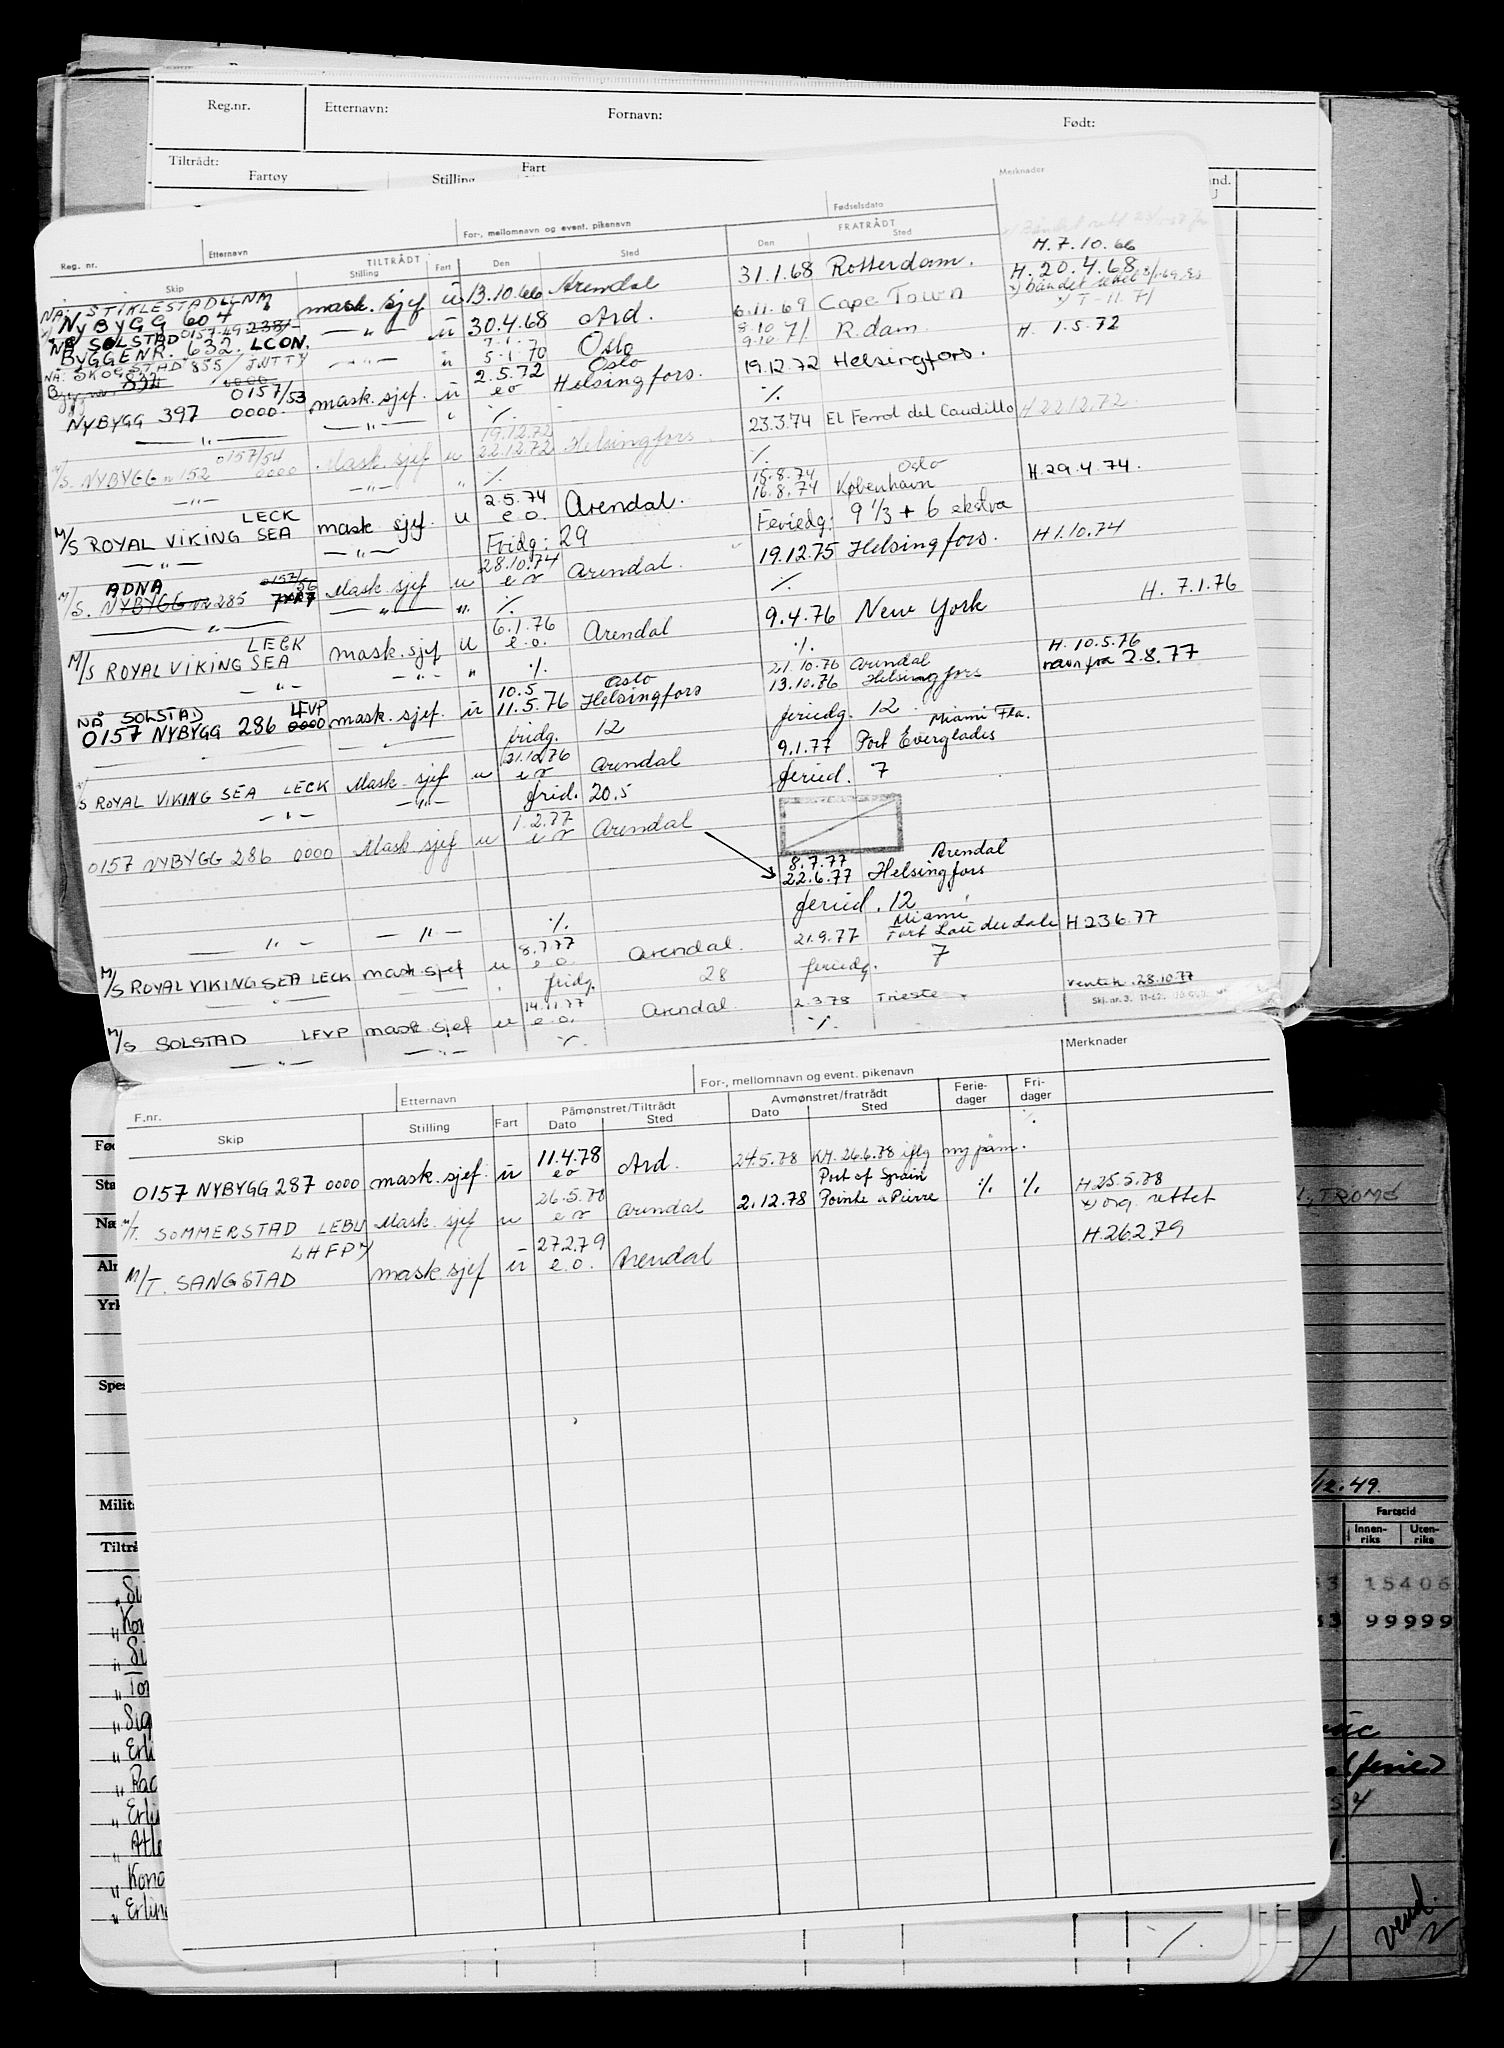 Reg.nr. Etternavn: Fornavn: Født:
Tiltrådt: Fartøy Stilling Fart
Reg. nr. Etternavn For-, mellomnavn og event. pikenavn Fødselsdato Merknader
TILTRÅDT FRATRÅDT
Skip Stilling Fart Den Sted Den Sted
H. 7.10.66
NÅ: STIKLESTAD LLNM
NYBYGG 604 mask. sjef ü 13.10.66 Arendal 31.1.68 Rotterdam. H. 20.4.68
NÅ SOLSTAD 0157-49 238/-
BYGGENR. 632. LCON. — " — ü 30.4.68 Ard. 6.11.69 Cape Town
NÅ: SKOGSTAD 855 / JWTTY — " — ü 7.1.70 Oslo 8.10 71 R.dam. H. 1.5.72
5.1.70 Oslo 9.10
832 0000
NYBYGG 397 0157/53 0000. mask. sjef. ü 2.5.72 e o Helsingfors. 19.12.72 Helsingfors.
— " — — " — " % %
M/S. NYBYGG nr 152 0157/54 0000 Mask. sjef u 19.12.72 22.12.72 Helsingfors 23.3.74 El Ferrol del Caudillo H 22.12.72.
— " — — " — " % %
M/S ROYAL VIKING SEA LECK mask sjef. u 2.5.74 e.o. Arendal. 15.8.74 Oslo H. 29.4.74.
16.8.74 København
— " — — " — Fridg: 29 Feriedg: 9 1/3 + 6 ekstra
M/S. ADNA NYBYGG nr 285 0157/56 Mask. sjef u 28.10.74 e o Arendal. 19.12.75 Helsingfors. H 1.10.74
— " — — " — " % %
M/S ROYAL VIKING SEA LECK mask. sjef u 6.1.76 e.o. Arendal 9.4.76 New York H. 7.1.76
— " — — " — " % %
NÅ SOLSTAD LFVP
0157 NYBYGG 286 0000 mask. sjef. ü 10.5 Oslo 21.10.76 Arendal H. 10.5.76
11.5.76 Helsingfors 13.10.76 Helsingfors navn fra 2.8.77
fridg. 12 feriedg. 12
M/S ROYAL VIKING SEA LECK Mask. sjef u 21.10.76 e o Arendal 9.1.77 Port Everglades Miami Fla.
— " — — " — frid. 20.5 feried. 7
0157 NYBYGG 286 0000 Mask sjef u 1.2.77 e o Arendal
8.7.77 Arendal
22.6.77 Helsingfors
feried. 12
— " — — " — %
M/S ROYAL VIKING SEA LECK mask sjef u 8.7.77 e.o. Arendal. 21.9.77 Miami Fort Lauderdale H 23.6.77
fridg. 28 feriedg. 7
M/S SOLSTAD LFVP mask sjef u 14.11.77 e.o. Arendal. 2.3.78 Trieste 28.10.77
— " — — " — % %
F.nr. Etternavn For-, mellomnavn og event. pikenavn Merknader
Skip Stilling Fart Påmønstret/Tiltrådt Avmønstret/fratrådt Ferie-dager Fri-dager
Dato Sted Dato Sted
0157 NYBYGG 287 0000 mask. sjef. ü 11.4.78 e o Ard. 24.5.78 KH. 26.6.78 iflg ny påm. %
M/T. SOMMERSTAD LEBU Mask. sjef u 26.5.78 e o Arendal 2.12.78 Port of Spain Pointe a Pierre % % H 25.5.78
x) org. rettet
M/T. SANGSTAD LHFP mask. sjef ü 27.2.79 e.o. Arendal H. 26.2.79
TROMØ
12.49.
Fartstid
Innen-riks Uten-riks
15406
99999
vend